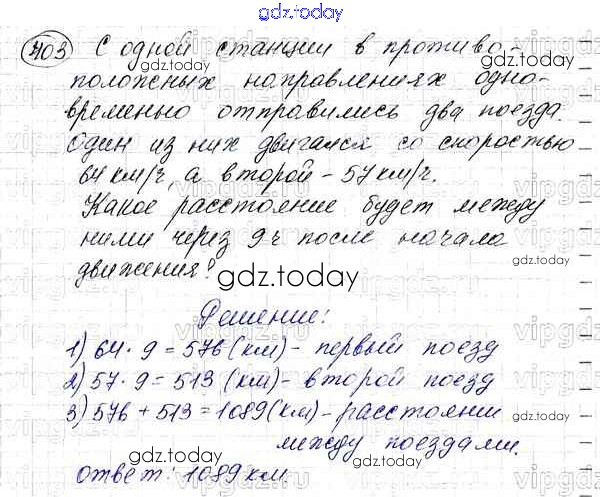 gdz.today
403 С одной станции в противо-
положных направлениях одно-
временно отправились два поезда.
Один из них двигался со скоростью
64 км/ч, а второй - 57 км/ч.
Какое расстояние будет между
ними через 9 ч после начала
движения?
gdz.today
Решение:
1) 64 · 9 = 576 (км) - первый поезд
2) 57 · 9 = 513 (км) - второй поезд
3) 576 + 513 = 1089 (км) - расстоянии
между поездами.
ответ: 1089 км.
gdz.today